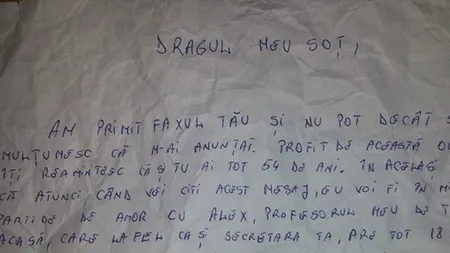 DRAGUL MEU SOȚ,
AM PRIMIT FAXUL TĂU ȘI NU POT DECÂT
MULȚUMESC CĂ M-AI ANUNȚAT. PROFIT DE ACEASTĂ
ÎȚI REAMINTESC CĂ ȘI TU AI TOT 54 DE ANI. ÎN ACELAȘI
CĂ ATUNCI CÂND VEI CITI ACEST MESAJ, EU VOI FI ÎN
PARTIDĂ DE AMOR CU ALEX, PROFESORUL MEU DE
ACASĂ, CARE LA FEL CA ȘI SECRETARA TA, ARE TOT 18